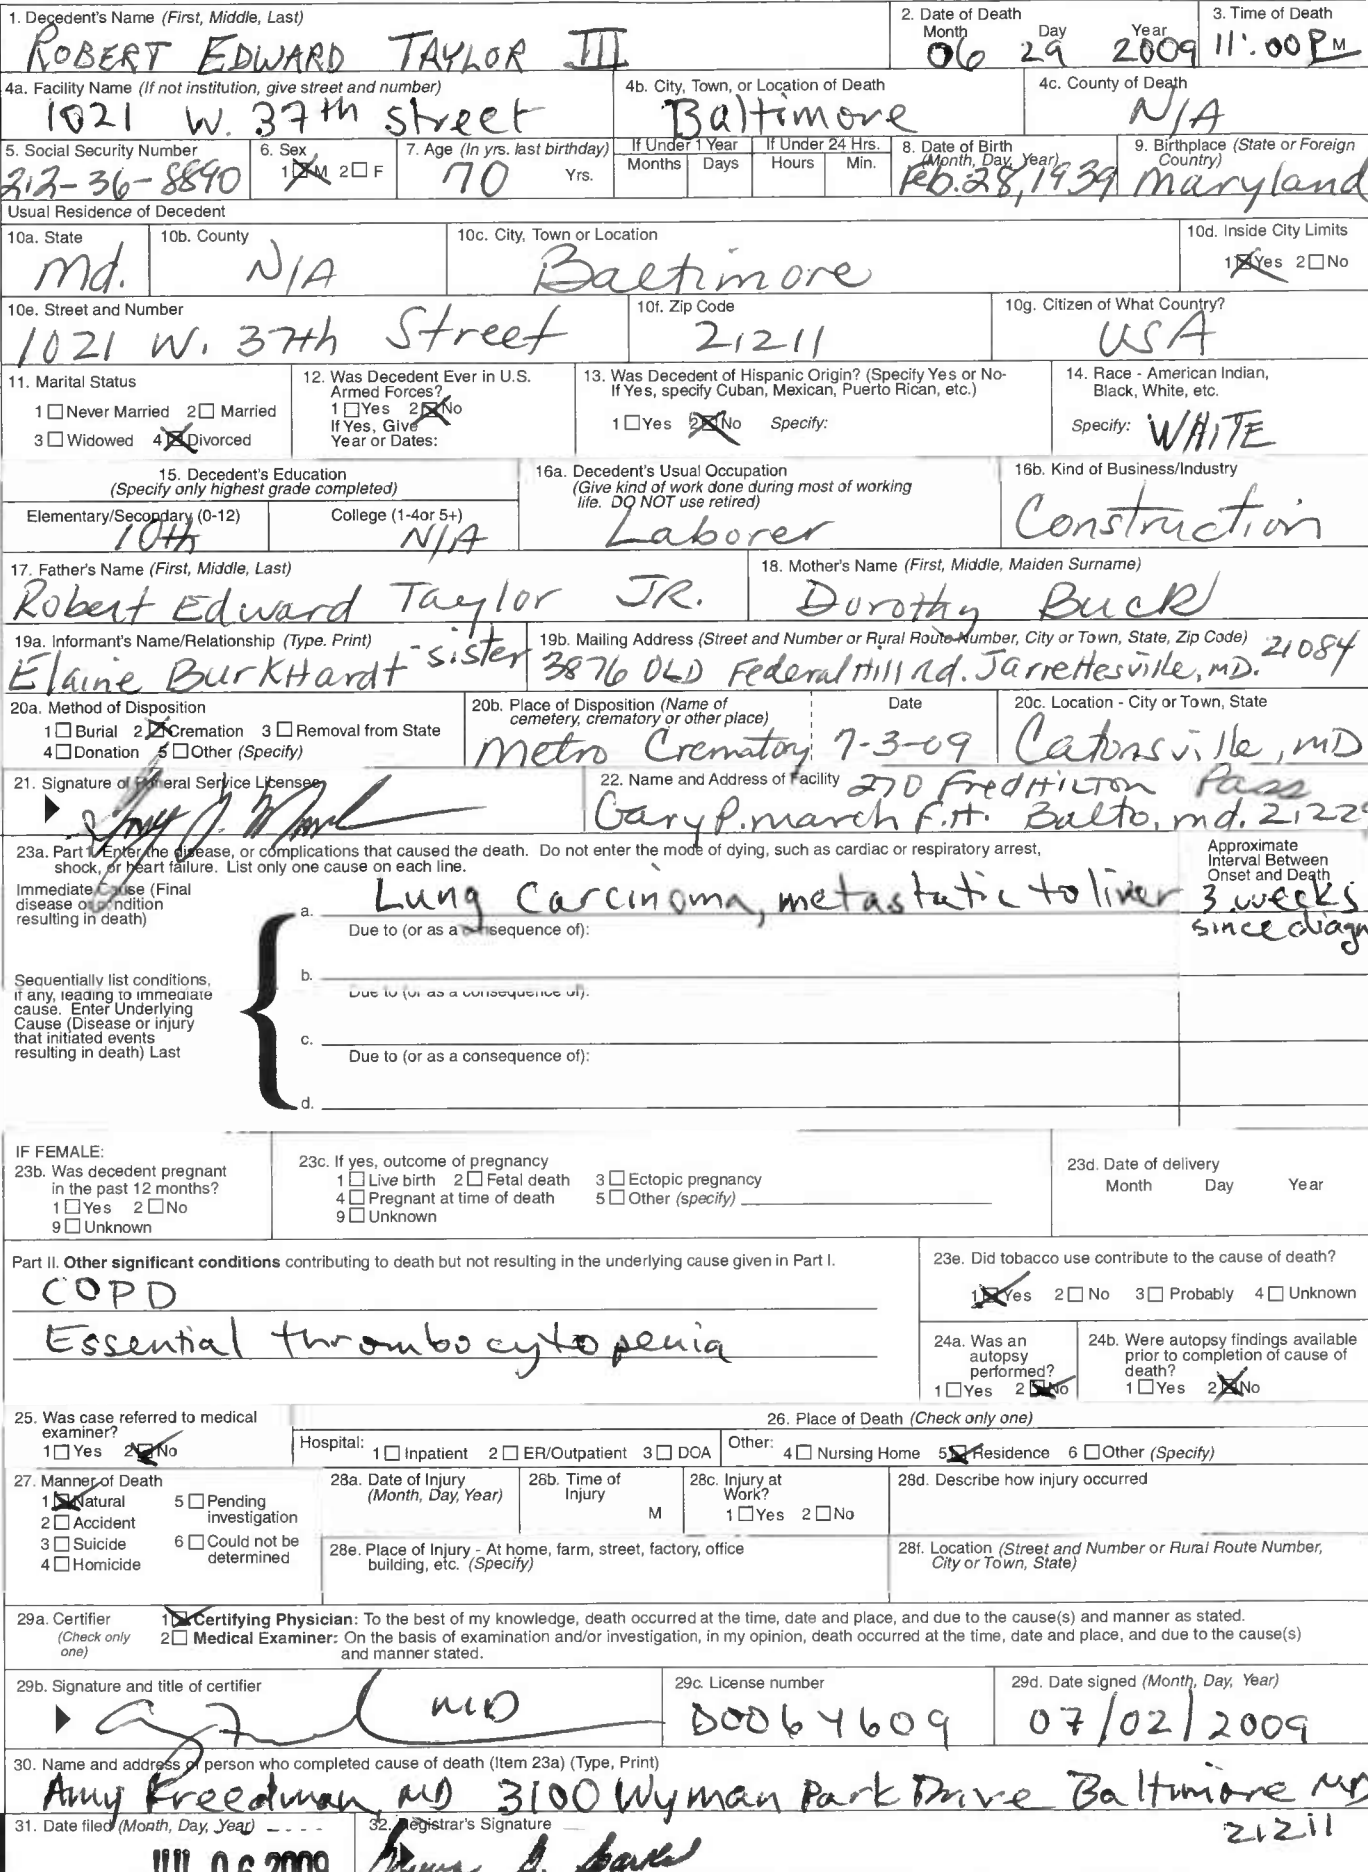 1. Decedent's Name (First, Middle, Last)
ROBERT EDWARD TAYLOR III
2. Date of Death
Month Day Year
06 29 2009
3. Time of Death
11:00 P M
4a. Facility Name (If not institution, give street and number)
1021 W. 37th street
4b. City, Town, or Location of Death
Baltimore
4c. County of Death
N/A
5. Social Security Number
212-36-8890
6. Sex
1☒M 2☐F
7. Age (In yrs. last birthday)
70 Yrs.
If Under 1 Year
Months Days
If Under 24 Hrs.
Hours Min.
8. Date of Birth
(Month, Day, Year)
Feb. 28, 1939
9. Birthplace (State or Foreign
Country)
Maryland
Usual Residence of Decedent
10a. State
Md.
10b. County
N/A
10c. City, Town or Location
Baltimore
10d. Inside City Limits
1☒Yes 2☐No
10e. Street and Number
1021 W. 37th Street
10f. Zip Code
21211
10g. Citizen of What Country?
USA
11. Marital Status
1☐Never Married 2☐Married
3☐Widowed 4☒Divorced
12. Was Decedent Ever in U.S.
Armed Forces?
1☐Yes 2☒No
If Yes, Give
Year or Dates:
13. Was Decedent of Hispanic Origin? (Specify Yes or No-
If Yes, specify Cuban, Mexican, Puerto Rican, etc.)
1☐Yes 2☒No Specify:
14. Race - American Indian,
Black, White, etc.
Specify: WHITE
15. Decedent's Education
(Specify only highest grade completed)
Elementary/Secondary (0-12)
10th
College (1-4or 5+)
N/A
16a. Decedent's Usual Occupation
(Give kind of work done during most of working
life. DO NOT use retired)
Laborer
16b. Kind of Business/Industry
Construction
17. Father's Name (First, Middle, Last)
Robert Edward Taylor JR.
18. Mother's Name (First, Middle, Maiden Surname)
Dorothy Buck
19a. Informant's Name/Relationship (Type. Print)
Elaine BurkHardt - sister
19b. Mailing Address (Street and Number or Rural Route Number, City or Town, State, Zip Code)
3876 OLD Federal Hill Rd. Jarrettesville, MD. 21084
20a. Method of Disposition
1☐Burial 2☒Cremation 3☐Removal from State
4☐Donation 5☐Other (Specify)
20b. Place of Disposition (Name of
cemetery, crematory or other place)
Metro Crematory
Date
7-3-09
20c. Location - City or Town, State
Catonsville, MD
21. Signature of Funeral Service Licensee
22. Name and Address of Facility 270 FredHilton Pass
Gary P. March F.H. Balto, md. 2122
23a. Part I. Enter the disease, or complications that caused the death. Do not enter the mode of dying, such as cardiac or respiratory arrest,
shock, or heart failure. List only one cause on each line.
Approximate
Interval Between
Onset and Death
Immediate Cause (Final
disease or condition
resulting in death)
a. Lung Carcinoma, metastatic to liver
3 weeks
since diagn
Due to (or as a consequence of):
Sequentially list conditions,
if any, leading to immediate
cause. Enter Underlying
Cause (Disease or injury
that initiated events
resulting in death) Last
b.
Due to (or as a consequence of):
c.
Due to (or as a consequence of):
d.
IF FEMALE:
23b. Was decedent pregnant
in the past 12 months?
1☐Yes 2☐No
9☐Unknown
23c. If yes, outcome of pregnancy
1☐Live birth 2☐Fetal death 3☐Ectopic pregnancy
4☐Pregnant at time of death 5☐Other (specify)
9☐Unknown
23d. Date of delivery
Month Day Year
Part II. Other significant conditions contributing to death but not resulting in the underlying cause given in Part I.
COPD
Essential thrombocytopenia
23e. Did tobacco use contribute to the cause of death?
1☒Yes 2☐No 3☐Probably 4☐Unknown
24a. Was an
autopsy
performed?
1☐Yes 2☒No
24b. Were autopsy findings available
prior to completion of cause of
death?
1☐Yes 2☒No
25. Was case referred to medical
examiner?
1☐Yes 2☒No
26. Place of Death (Check only one)
Hospital: 1☐Inpatient 2☐ER/Outpatient 3☐DOA Other: 4☐Nursing Home 5☒Residence 6☐Other (Specify)
27. Manner of Death
1☒Natural 5☐Pending
investigation
2☐Accident
3☐Suicide 6☐Could not be
determined
4☐Homicide
28a. Date of Injury
(Month, Day, Year)
28b. Time of
Injury
M
28c. Injury at
Work?
1☐Yes 2☐No
28d. Describe how injury occurred
28e. Place of Injury - At home, farm, street, factory, office
building, etc. (Specify)
28f. Location (Street and Number or Rural Route Number,
City or Town, State)
29a. Certifier
(Check only
one)
1☒Certifying Physician: To the best of my knowledge, death occurred at the time, date and place, and due to the cause(s) and manner as stated.
2☐Medical Examiner: On the basis of examination and/or investigation, in my opinion, death occurred at the time, date and place, and due to the cause(s)
and manner stated.
29b. Signature and title of certifier
MD
29c. License number
D0064609
29d. Date signed (Month, Day, Year)
07/02/2009
30. Name and address of person who completed cause of death (Item 23a) (Type, Print)
Amy Freedman, MD 3100 Wyman Park Drive Baltimore MD
21211
31. Date filed (Month, Day, Year)
JUL 06 2009
32. Registrar's Signature